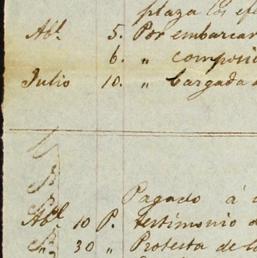 plaza los efe
Ab.l 5. Por embarcar
6. " composic
Julio 10. " Cargada a
Pagado á
Ab.l 10 P. testimonio d
30 " Protesta de l